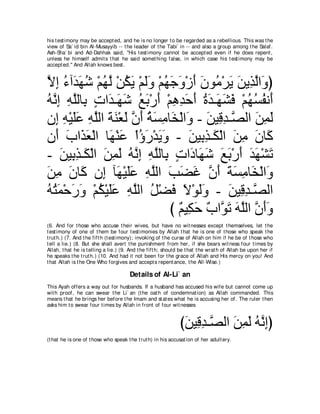 his testimony may be accepted, and he is no longer to be regarded as a rebellious. This was the
view of Sa`id bin Al-Musayyib -- the leader of the Tabi`in -- and also a group among the Salaf.
Ash-Sha`bi and Ad-Dahhak said, "His testimony cannot be accepted even if he does repent,
unless he himself admits that he said something false, in which case his testimony may be
accepted.'' And Allah knows best.
(وَالَّذِينَ يَرْمُونَ أَزْوَجَهُمْ وَلَمْ يَكُنْ لَّهُمْ شُهَدَآءُ إِلاَّ
أَنفُسُهُمْ فَشَهَـدَةُ أَحَدِهِمْ أَرْبَعُ شَهَـدَاتٍ بِاللَّهِ إِنَّهُ
لَمِنَ الصَّـدِقِينَ - وَالْخَامِسَةُ أَنَّ لَعْنَةَ اللَّهِ عَلَيْهِ إِن
كَانَ مِنَ الْكَـذِبِينَ - وَيَدْرَؤُاْ عَنْهَا الْعَذَابَ أَن
تَشْهَدَ أَرْبَعَ شَهَادَاتٍ بِاللَّهِ إِنَّهُ لَمِنَ الْكَـذِبِينَ -
وَالْخَامِسَةَ أَنَّ غَضَبَ اللَّهِ عَلَيْهَآ إِن كَانَ مِنَ
الصَّـدِقِينَ - وَلَوْلاَ فَضْلُ اللَّهِ عَلَيْكُمْ وَرَحْمَتُهُ
وَأَنَّ اللَّهَ تَوَّابٌ حَكِيمٌ )
(6. And for those who accuse their wives, but have no witnesses except themselves, let the
testimony of one of them be four testimonies by Allah that he is one of those who speak the
truth.) (7. And the fifth (testimony), invoking of the curse of Allah on him if he be of those who
tell a lie.) (8. But she shall avert the punishment from her, if she bears witness four times by
Allah, that he is telling a lie.) (9. And the fifth; should be that the wrath of Allah be upon her if
he speaks the truth.) (10. And had it not been for the grace of Allah and His mercy on you! And
that Allah is the One Who forgives and accepts repentance, the All-Wise.)
Details of Al-Li`an
This Ayah offers a way out for husbands. If a husband has accused his wife but cannot come up
with proof, he can swear the Li`an (the oath of condemnation) as Allah commanded. This
means that he brings her before the Imam and states what he is accusing her of. The ruler then
asks him to swear four times by Allah in front of four witnesses
(إِنَّهُ لَمِنَ الصَّـدِقِينَ)
(that he is one of those who speak the truth) in his accusation of her adultery.